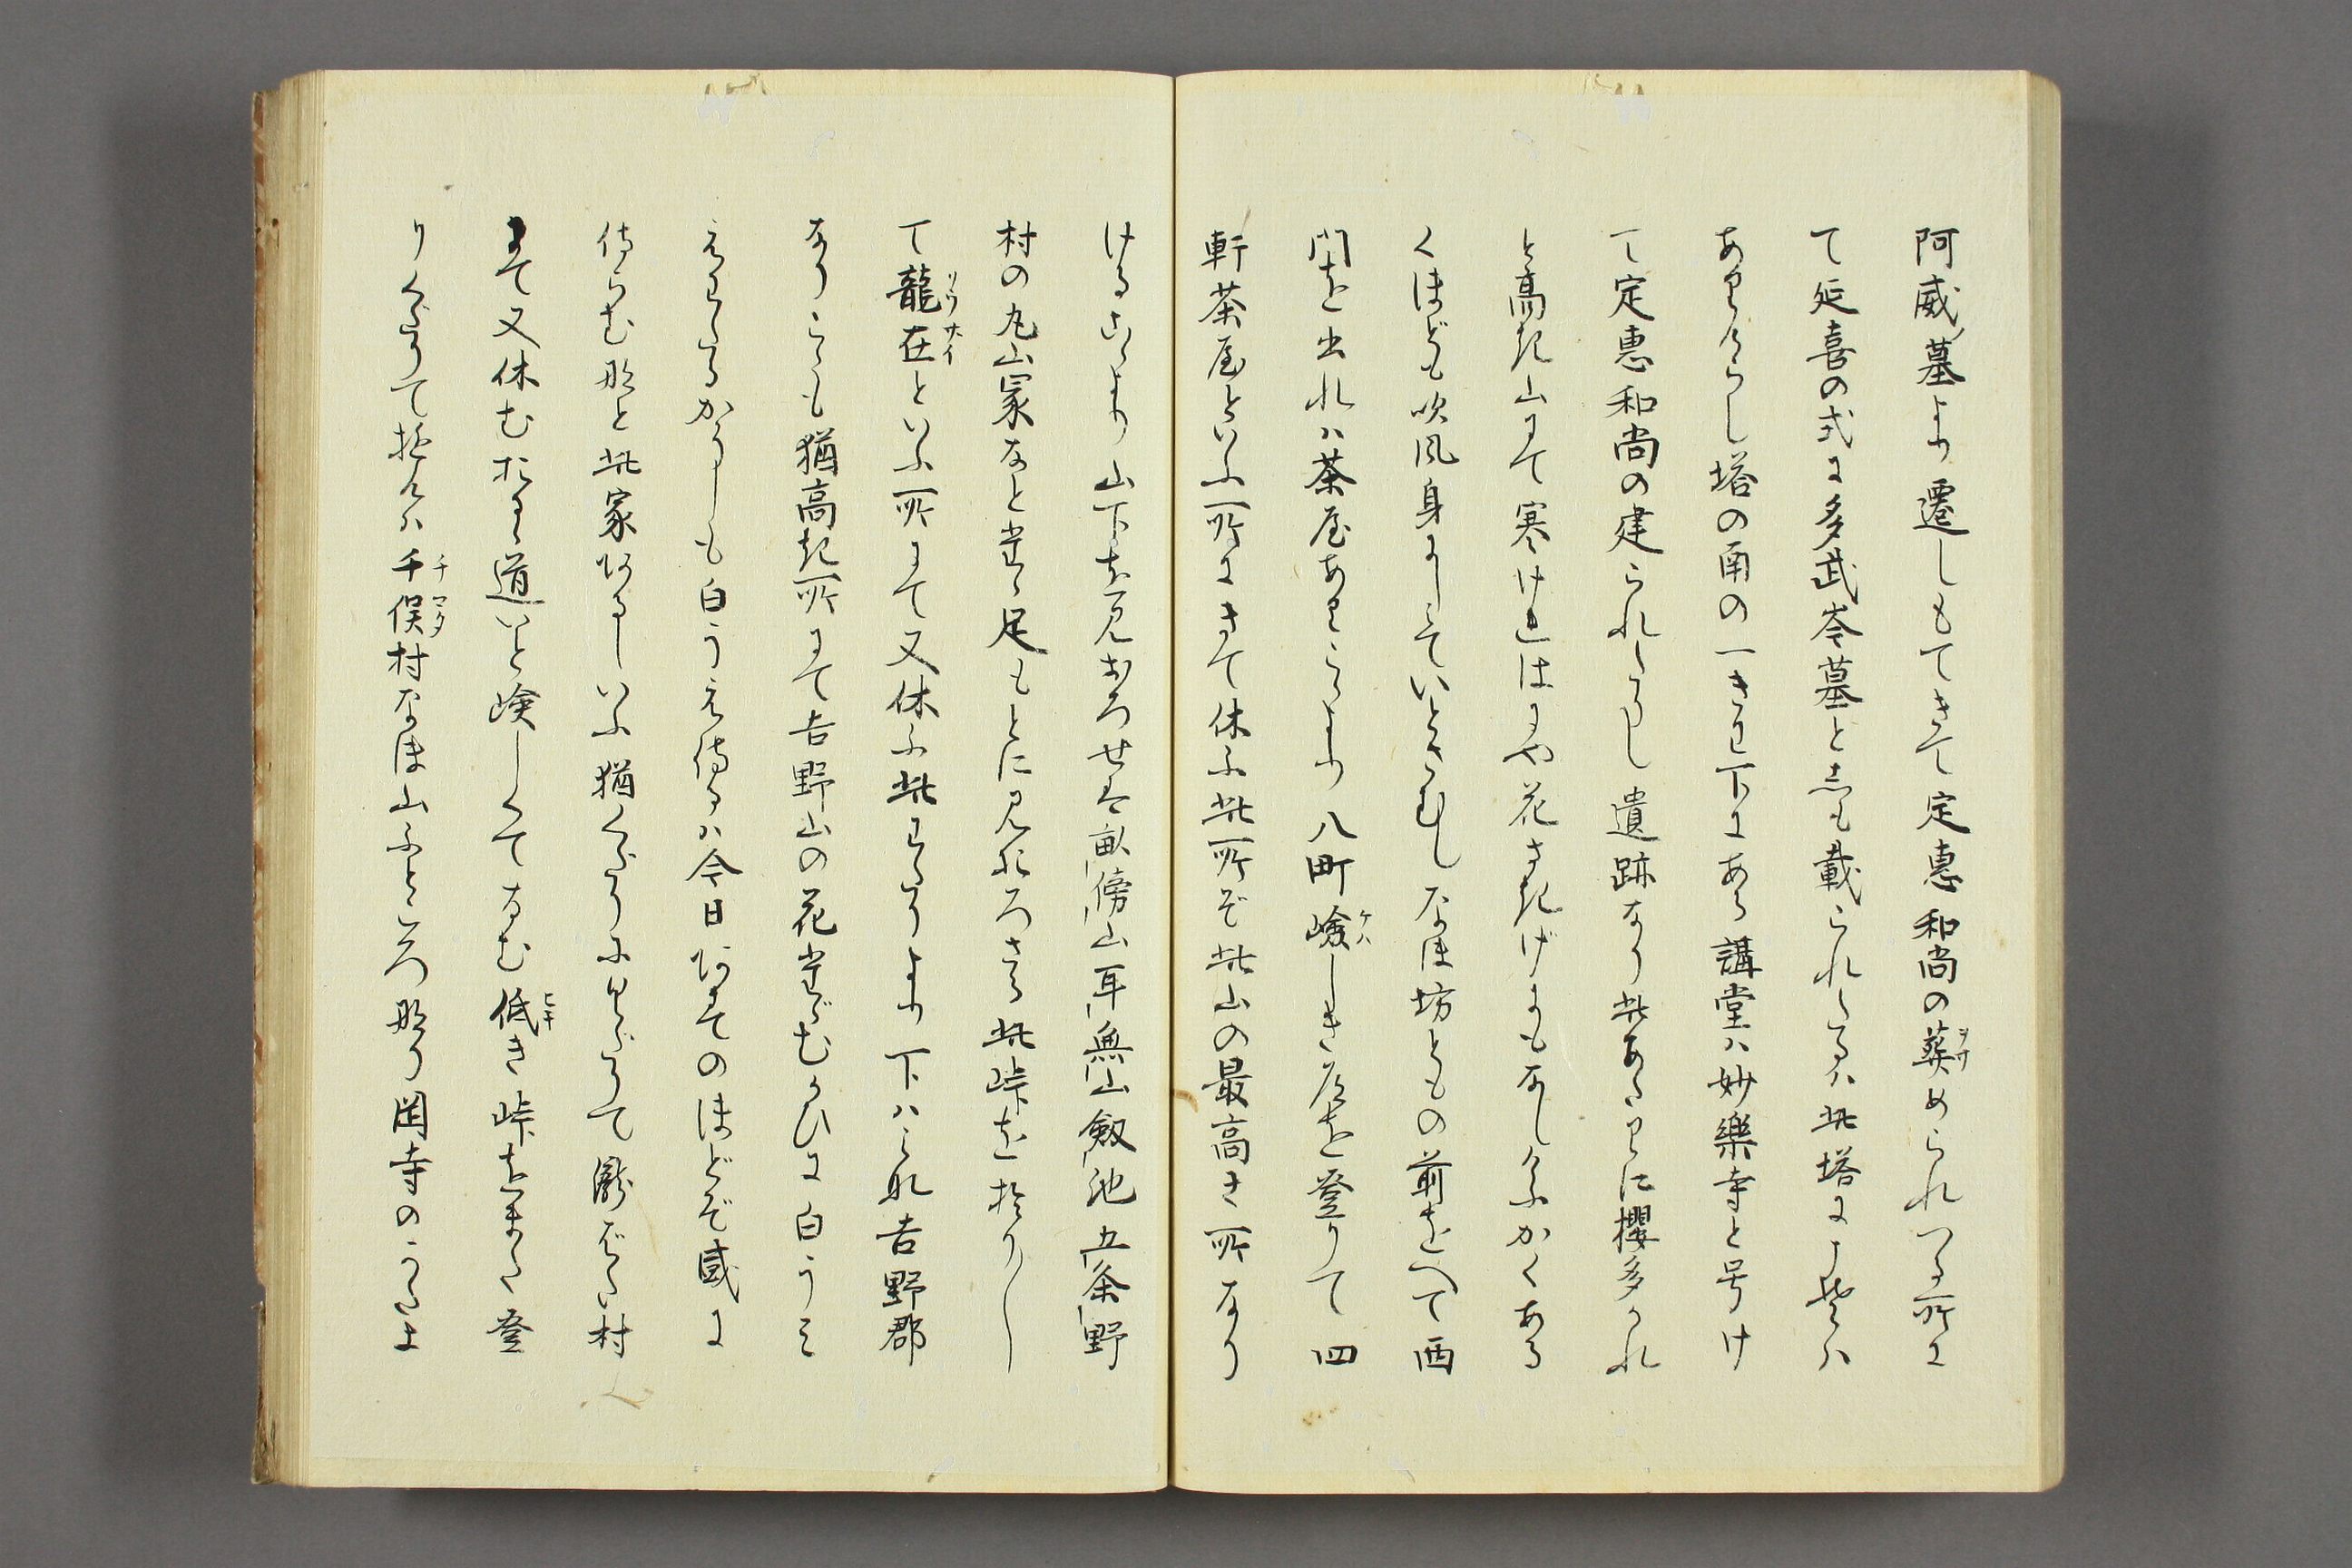 阿威ノ墓より遷しもてきて定惠和尚の葬められつる所に
て延喜の式に多武峯墓としも載られたるハ此塔にこそハ
ありけらし塔の南の一きは下にある講堂ハ妙樂寺と号け
て定惠和尚の建られたりし遺跡なり此あたりに櫻多かれ
と高き山にて寒けれはにや花さきげにもなしくふかくある
くほども吹風身にしみていとさむしなほ坊ともの前をへて西
門を出れハ茶屋ありこゝより八町嶮しき磴を登りて四
軒茶屋といふ所にきて休ふ此所ぞ此山の最高き所なり
けるこゝより山下を見おろせは畝傍山耳無山劔池五条野
村の丸山冢なとたゝ足もとに見おろさる此峠をおりし
て龍在といふ所にて又休ふ此わたりより下ハこれ吉野郡
なりこゝも猶高き所にて吉野山の花たゞむかひに白うミ
えわたるかうしも白うみえ侍るハ今日あすのほどぞ盛に
侍らむ那と此家あるしいふ猶くだりにくだりて瀧ばた村
にて又休むおりゝ道いと嶮しくてなむ低き峠をまた登
りくだりておるれハ千俣村なほ山ふところ那り岡寺のうたに
リウサイ
ヲサ
ケハ
ヒキ
チマタ